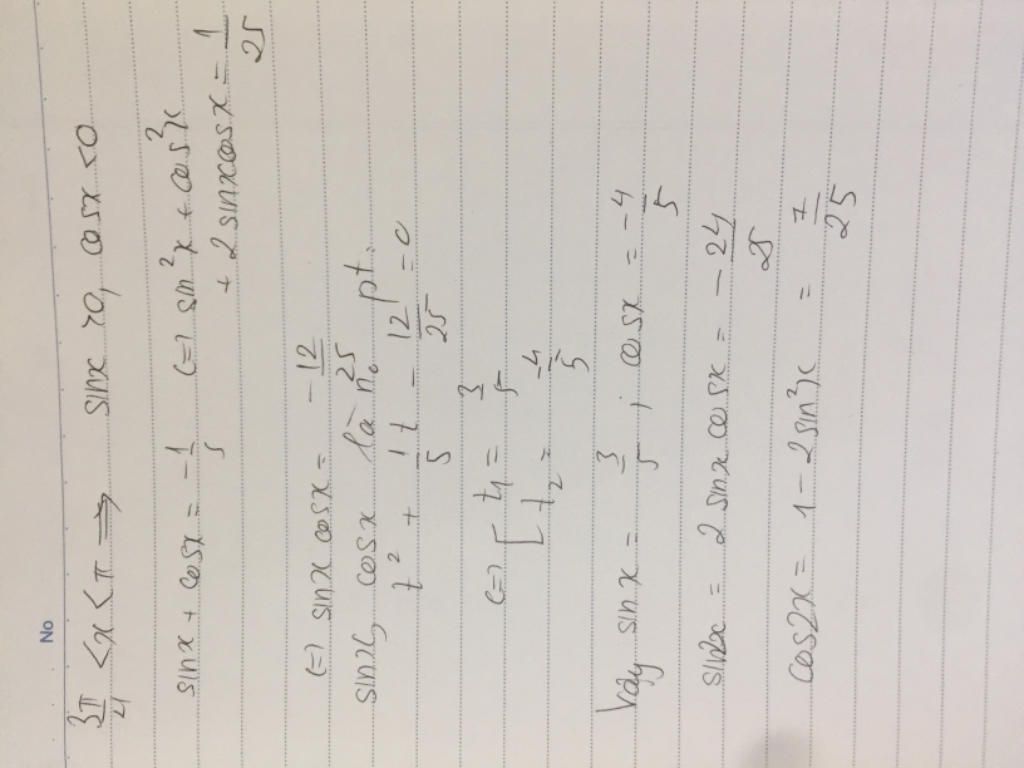 No
3π/4 < x < π ⟹ sinx > 0, cosx < 0
sinx + cosx = -1/5 (=) sin²x + cos²x
+ 2 sinxcosx = 1/25
(=) sinx cosx = -12/25
sinx, cosx là no pt.
t² + 1/5 t - 12/25 = 0
(=) [ t₁ = 3/5
t₂ = -4/5
Vậy sinx = 3/5 ; cosx = -4/5
sin2x = 2 sinx cosx = -24/25
cos2x = 1 - 2sin²x = 7/25